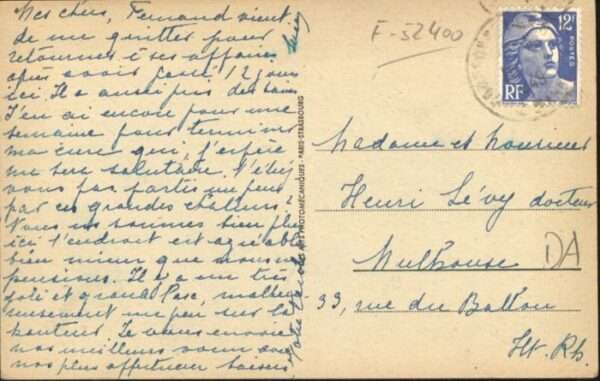 Mes chers, Fernand vient
de me quitter pour
retourner à ses affaires
après avoir passé 12 jours
ici. Il a aussi pris des bains
J'en ai encore pour une
semaine pour terminer
ma cure qui, j'espère
me sera salutaire. N'êtes
vous pas partis un peu
par ces grandes chaleurs?
Nous nous sommes bien plu
ici l'endroit est agréable
bien mieux que nous ne
pensions. Il y a un très
joli et grand Parc, malheu
reusement un peu sur la
hauteur. Je vous envoie
nos meilleurs vœux avec
nos plus affectueux baisers
PHOTOMÉCANIQUES - PARIS-STRASBOURG
F-52400
12F
POSTES
RF
Madame et Monsieur
Henri Lévy docteur
Mulhouse
DA
33, rue du Ballon
Ht. Rh.